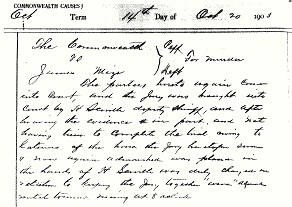 COMMONWEALTH CAUSES]
Oct Term 14th Day of Oct 20 190
The Commonwealth Peff
vs For murder
James Deft
The parties hereto again came
into Court and the Jury was brought into
Court by H Smith deputy Shff, and after
hearing the evidence in part, and not
having time to complete the trial owing to
lateness of the hour the Jury
again admonished was placed in
the hands of H Smith was duly charged in
relation to keeping the Jory together until
until tomorrow morning at 8 oclock